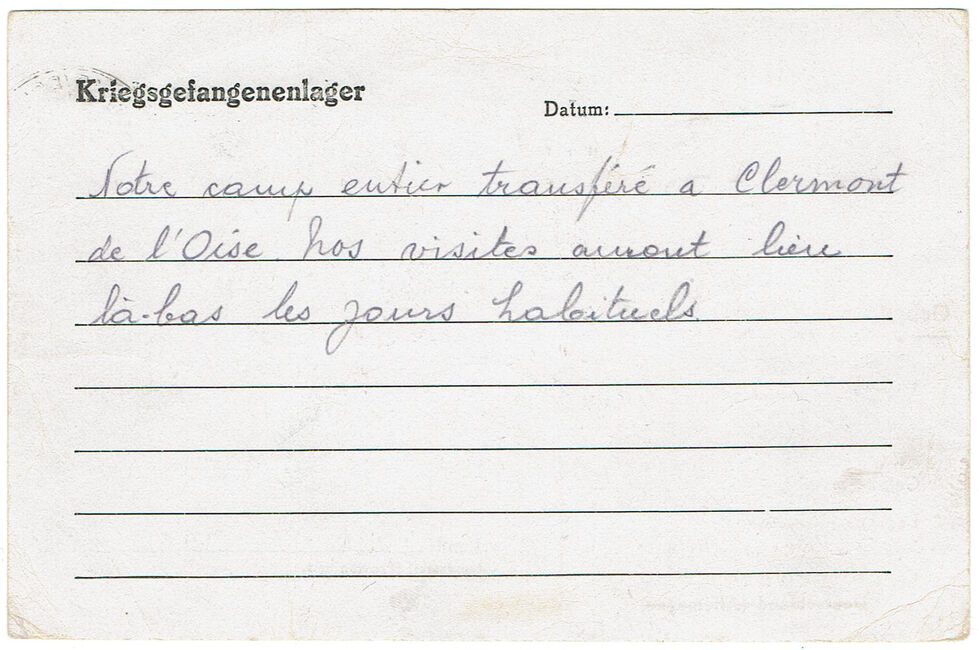 Kriegsgefangenenlager
Datum:
Notre camp entier transféré a Clermont
de l'Oise. Nos visites auront lieu
là-bas les jours habituels